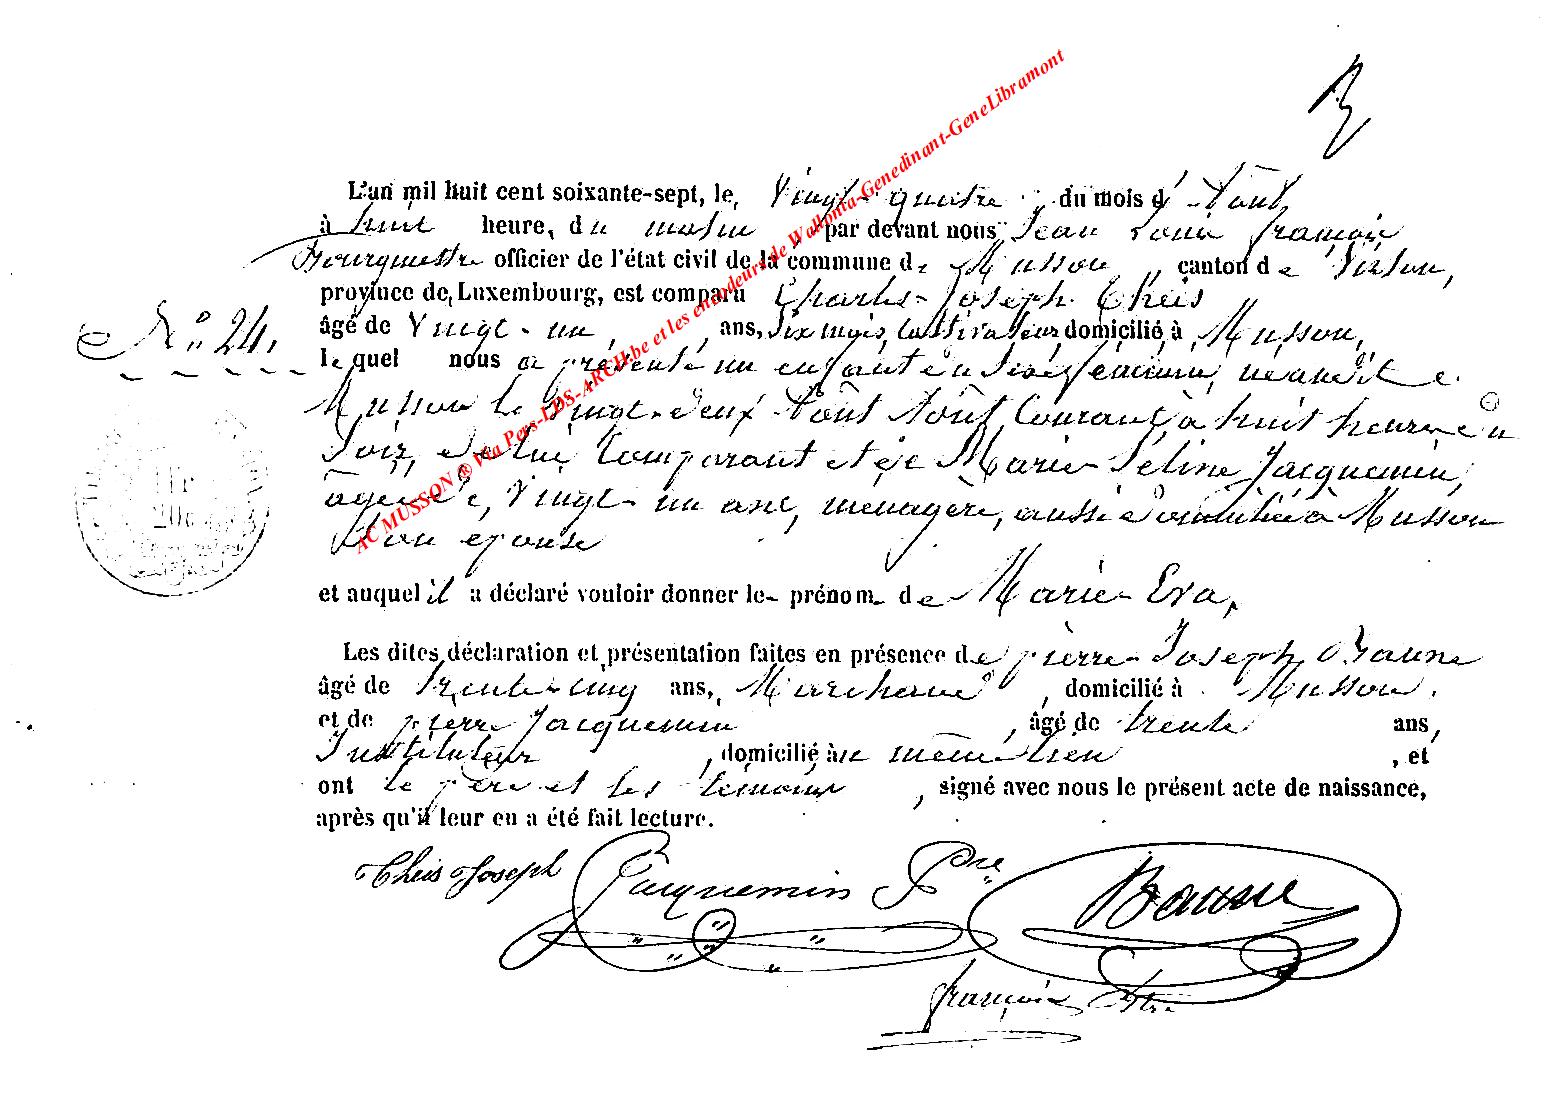 L'an mil huit cent soixante-sept, le Vingt-quatre du mois d'Août
à huit heure, du matin, par devant nous Jean Louis françois
Bourgmestre officier de l'état civil de la commune de Musson, canton de Virton,
province de Luxembourg, est comparu Charles-Joseph Theis
N° 24.
âgé de Vingt-un, ans, six mois, Cultivateur domicilié à Musson,
lequel nous a présenté un enfant du sexe féminin, né
Musson le Vingt-deux Août courant à huit heures du
soir, de lui Comparant et de Marie-Céline Jacquemin,
âgée de Vingt-un ans, ménagère, aussi domiciliée à Musson
Son épouse
et auquel il a déclaré vouloir donner le prénom de Marie-Eva,
Les dites déclaration et présentation faites en présence de pierre-Joseph Baune
âgé de trente-cinq ans, Marchand, domicilié à Musson.
et de pierre Jacquemin, âgé de trente ans,
Instituteur, domicilié au même lieu, et
ont le père et les témoins, signé avec nous le présent acte de naissance,
après qu'il leur en a été fait lecture.
Theis Joseph Jacquemin Pre Baune
françois
AC MUSSON ® Via Pers-LDS-ARCH.be et les encodeurs de Wallonia-Genedinant-GeneLibramont